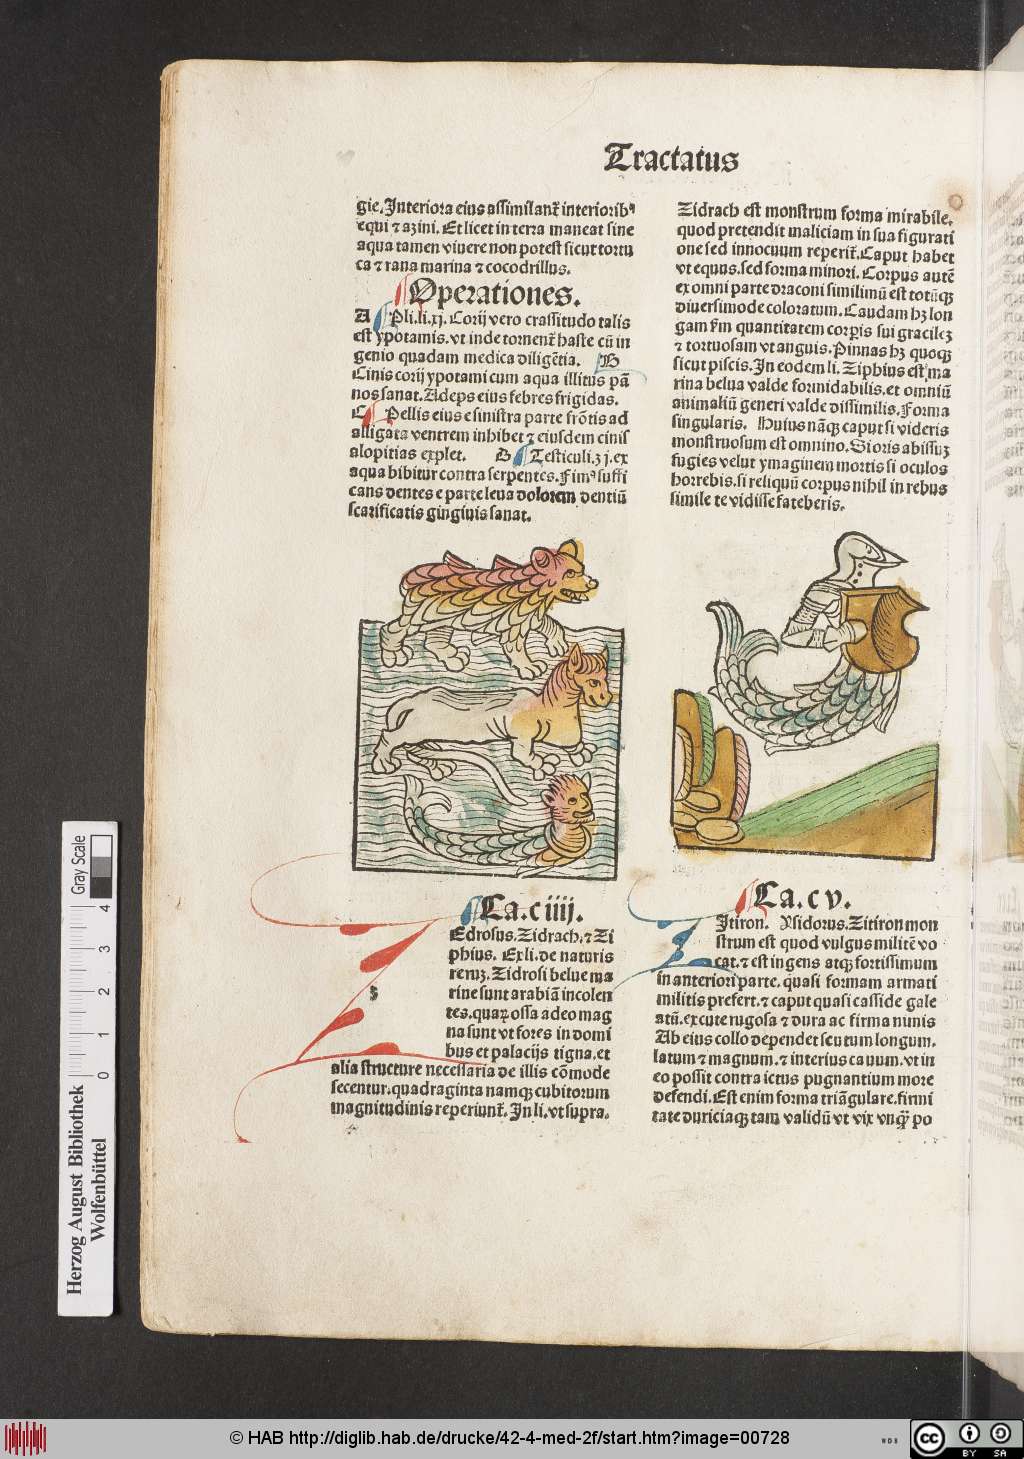 Tractatus
gie. Interiora eius assimilant᷑ interiorib⁹
equi ⁊ azini. Et licet in terra maneat sine
aqua tamen viuere non potest sicut tortu
ca ⁊ rana marina ⁊ cocodrillus.
Operationes.
A Pli. li. xj. Corij vero crassitudo talis
est ypotamis. vt inde tornent᷑ haste cū in
genio quadam medica diligētia. B
Cinis corij ypotami cum aqua illitus pā
nos sanat. Adeps eius febres frigidas.
C Pellis eius e sinistra parte frōtis ad
alligata ventrem inhibet ⁊ eiusdem cinis
alopitias explet. D Testiculi. ʒ j. ex
aqua bibitur contra serpentes. Fim⁹ suffi
cans dentes e parte leua dolorem dentiū
scarificatis gingiuis sanat.
Ca. c iiij.
Edrosus. Zidrach. ⁊ Zi
phius. Ex li. de naturis
reruꝫ. Zidrosi belue ma
rine sunt arabiā incolen
tes. quaꝝ ossa adeo mag
na sunt vt fores in domi
bus et palacijs tigna. et
alia structure necessaria de illis cōmode
secentur. quadraginta namqꝫ cubitorum
magnitudinis reperiunt᷑. In li. vt supra.
Zidrach est monstrum forma mirabile.
quod pretendit maliciam in sua figurati
one sed innocuum reperit᷑. Caput habet
vt equus. sed forma minori. Corpus autē
ex omni parte draconi similimū est totūqꝫ
diuersimode coloratum. Caudam hꝫ lon
gam ẜm quantitatem corꝑis sui gracileꝫ
⁊ tortuosam vt anguis. Pinnas hꝫ quoqꝫ
sicut piscis. In eodem li. Ziphius est ma
rina belua valde formidabilis. et omniū
animaliū generi valde dissimilis. Forma
singularis. Huius nāqꝫ caput si videris
monstruosum est omnino. Si oris abissuꝫ
fugies velut ymaginem mortis si oculos
horrebis. si reliquū corpus nihil in rebus
simile te vidisse fateberis.
Ca. c v.
Itiron. Ysidorus. Zitiron mon
strum est quod vulgus militē vo
cat. ⁊ est ingens atqꝫ fortissimum
in anteriori parte. quasi formam armati
militis prefert. ⁊ caput quasi casside gale
atū. ex cute rugosa ⁊ dura ac firma nimis
Ab eius collo dependet scutum longum.
latum ⁊ magnum. ⁊ interius cauum. vt in
eo possit contra ictus pugnantium more
defendi. Est enim forma triāgulare. firmi
tate duriciaqꝫ tam validū vt vix vnqᷓ po
Herzog August Bibliothek
Wolfenbüttel
Gray Scale
0 1 2 3 4
© HAB http://diglib.hab.de/drucke/42-4-med-2f/start.htm?image=00728
WDB
cc
BY SA